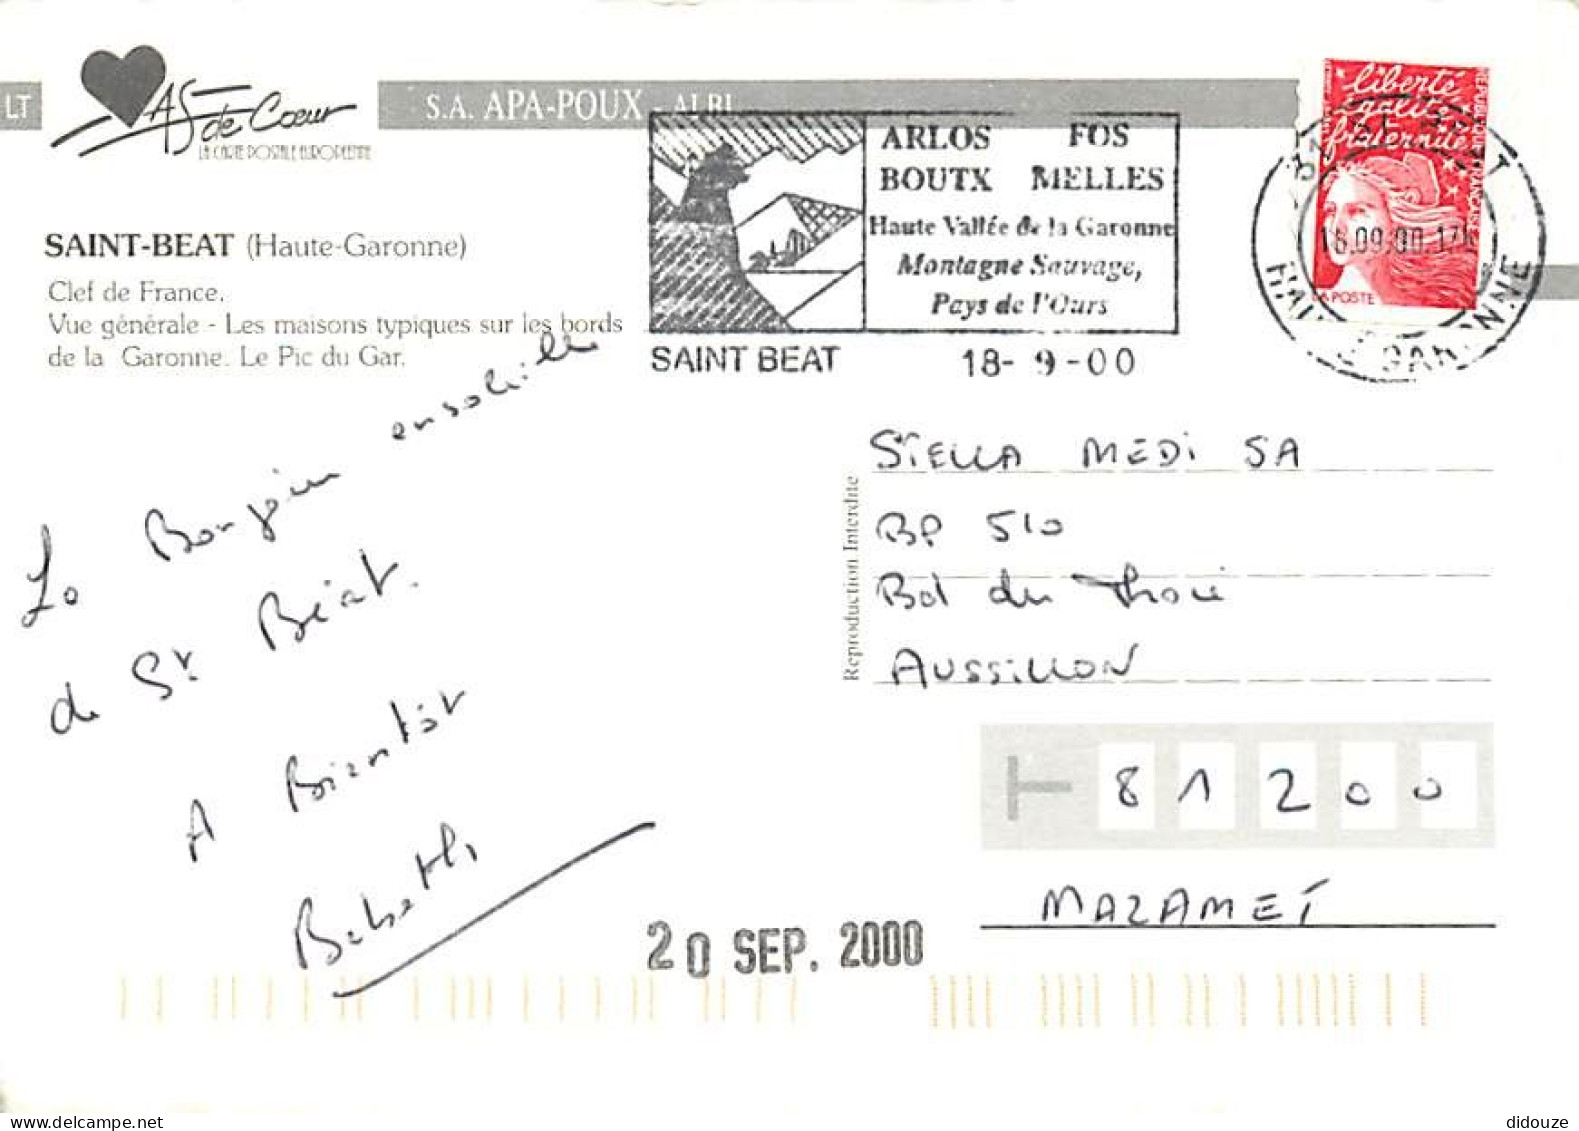 LT
As de Coeur
LA CARTE POSTALE EUROPEENNE
S.A. APA-POUX - ALBI
SAINT-BEAT (Haute-Garonne)
Clef de France.
Vue générale - Les maisons typiques sur les bords
de la Garonne. Le Pic du Gar.
ARLOS FOS
BOUTX MELLES
Haute Vallée de la Garonne
Montagne Sauvage,
Pays de l'Ours
SAINT BEAT 18- 9-00
liberté
égalité
fraternité
REPUBLIQUE FRANÇAISE
LA POSTE
18.09.00-17
HAUTE GARONNE
Le Bonjour ensoleillé
de St Béat.
A Bientôt
Babeth
Reproduction Interdite
STELLA MEDI SA
BP 510
Bd du Thoré
AUSSILLON
81200
MAZAMET
20 SEP. 2000
didouze